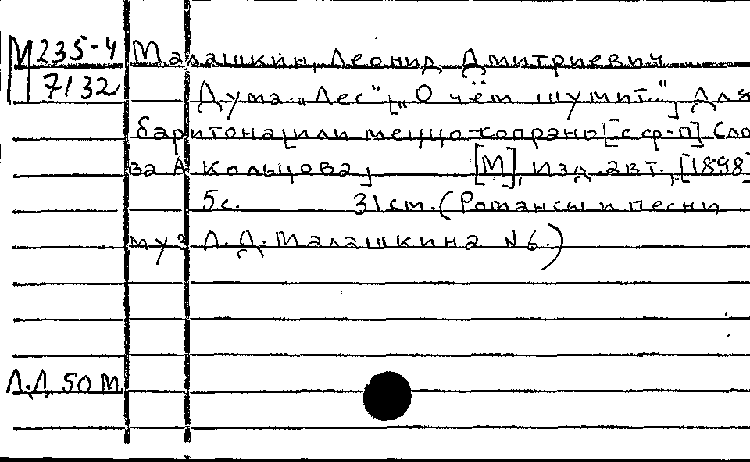 М 235-4 Малашкин, Леонид Дмитриевич
7132 Дума „Лес" [„О чём шумит.."] для
баритона [или меццо-сопрано] [с ф-п] Сло
ва А Кольцова]
[М], Изд. авт., [1898]
5с. 31см. (Романсы и песни
муз Л. Д. Малашкина №6)
Л.Д. 50 М